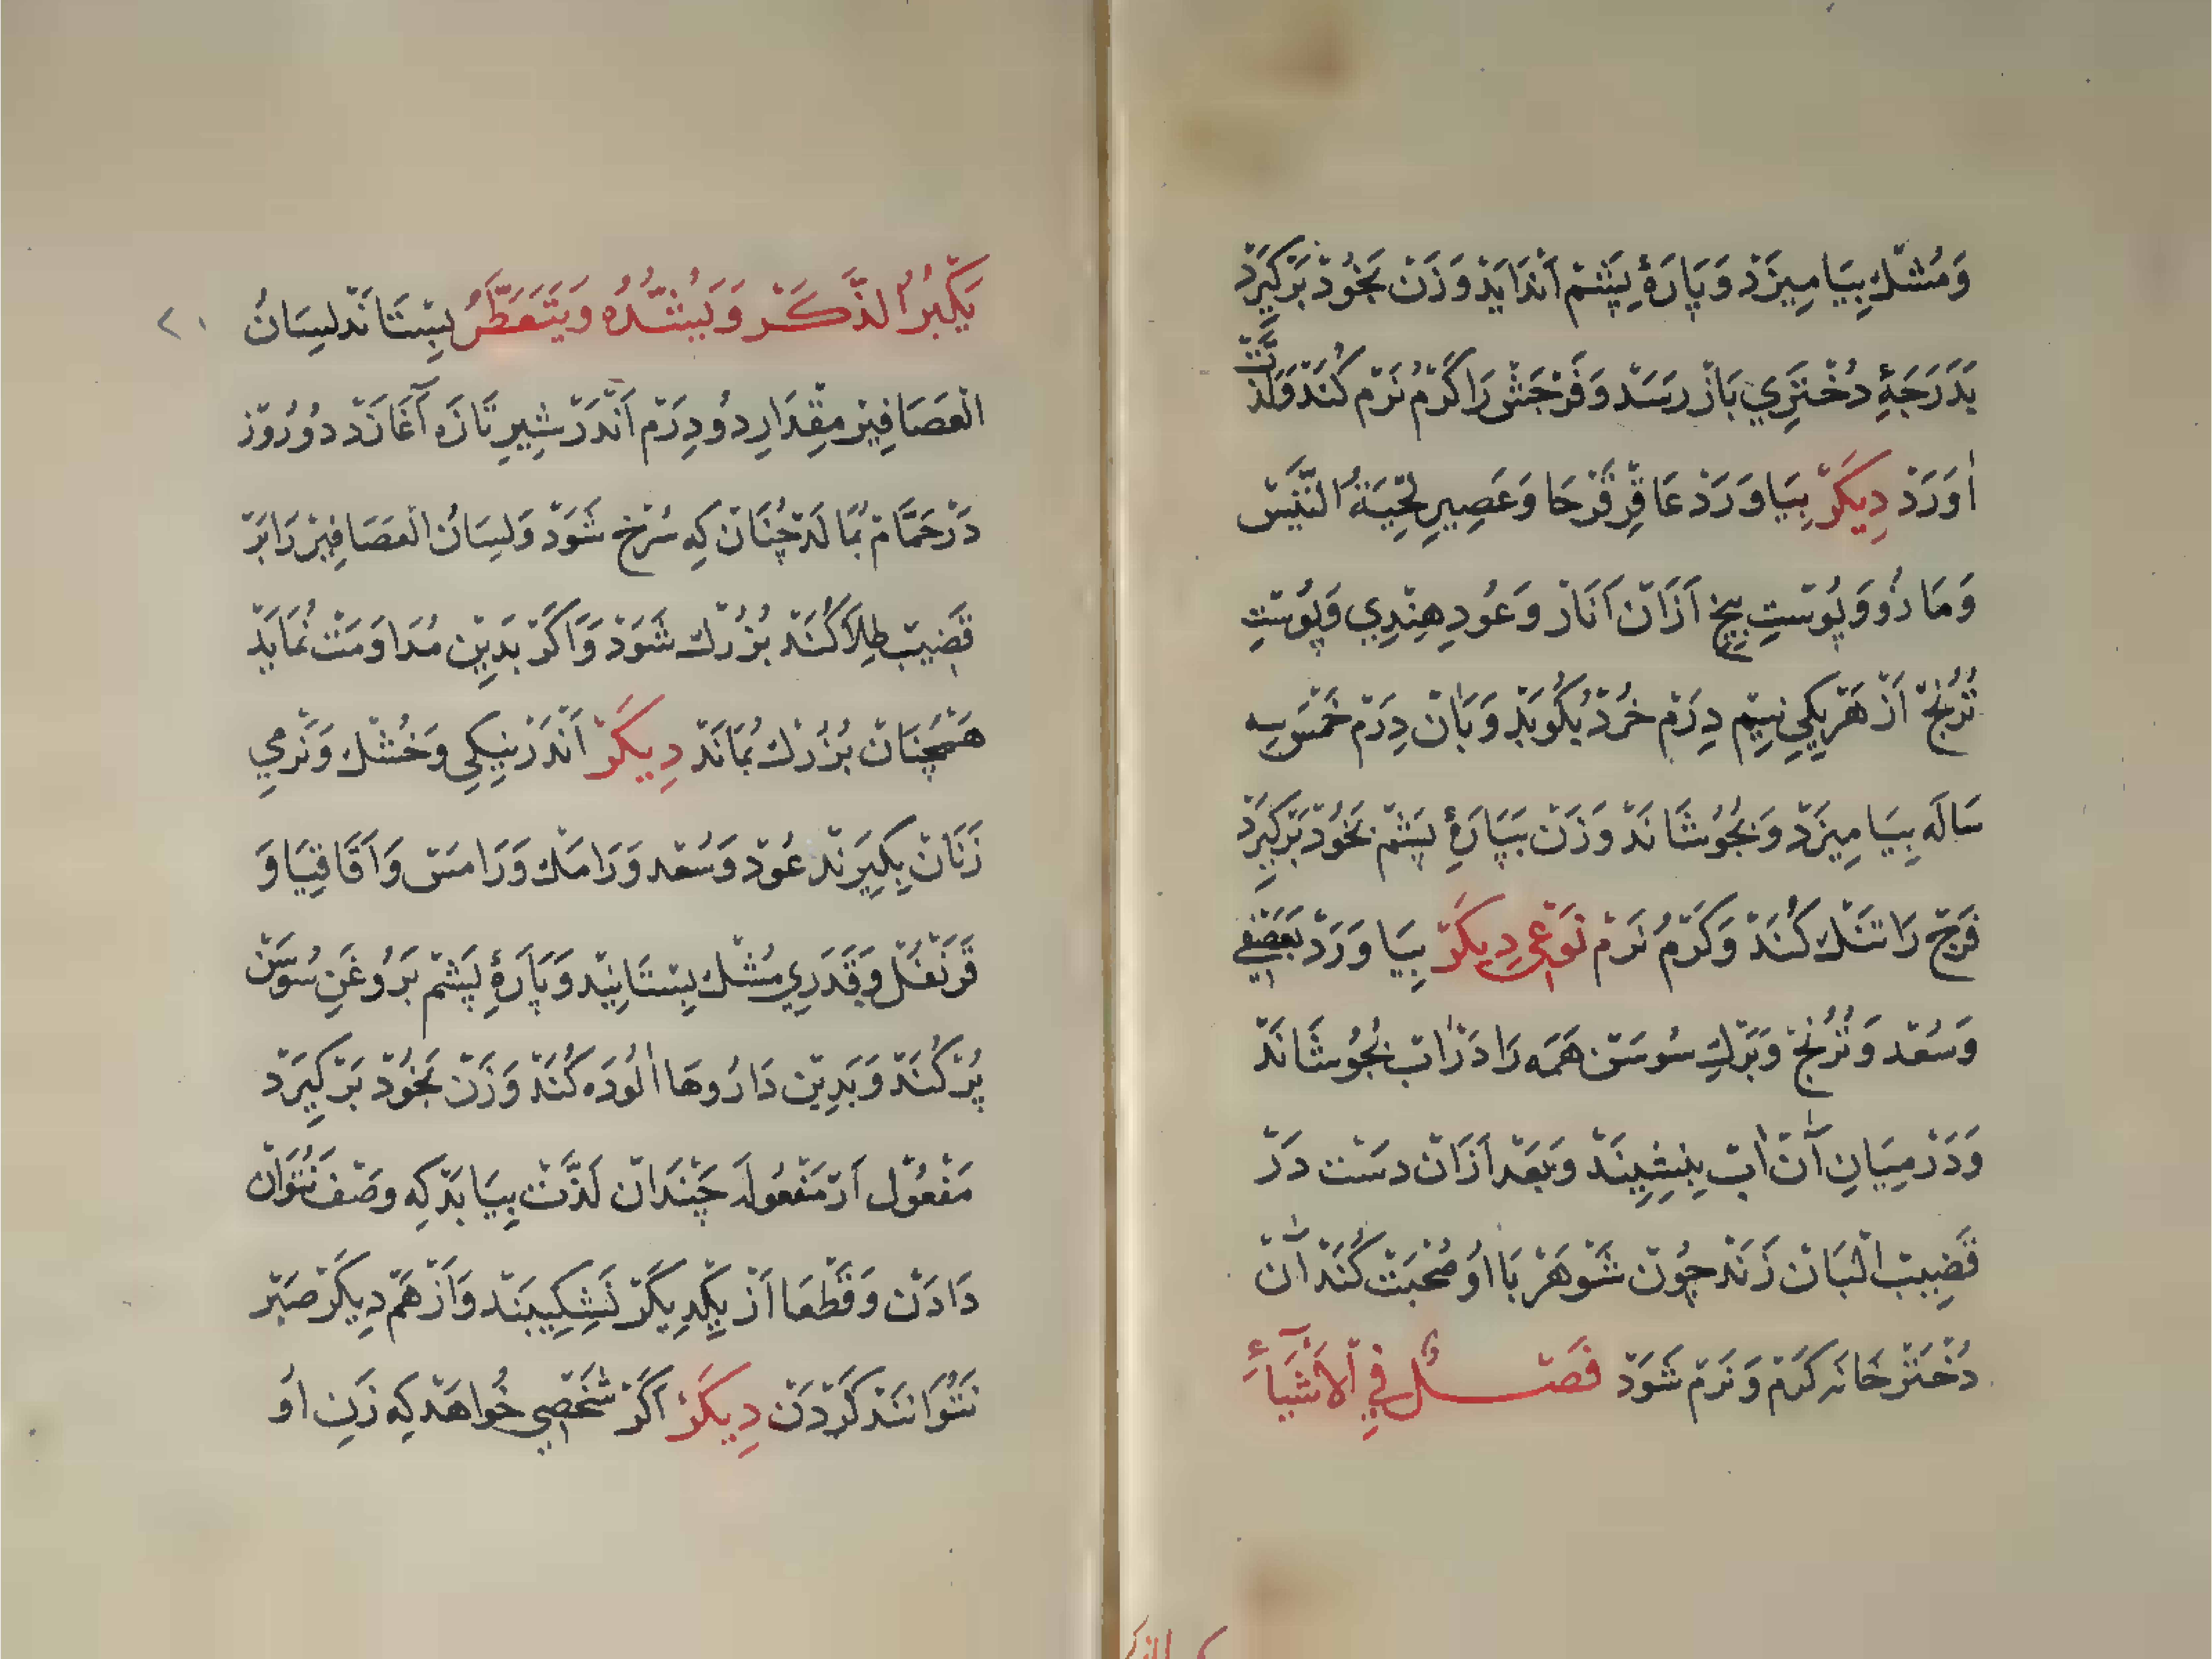 وَمُشْكْ بِيَامِيزَدْ وَپَارَهٔ پَشِمْ اَنْدَايَدْ وَزَنْ بَخُودْ بَرْكِيرَدْ
بَدَرَجَهِٔ دُخْتَرِي بَازْ رَسَدْ وَفَرْجَشْ رَا كَرْمُ نَرْم كُنَدْ وَلَذَّتْ
اٰوَرَدْ دِيكَرْ بِيَاوَرَدْ عَاقِرْقَرْحَا وَعَصِيرِ لِحْيَةُ التَّيْسْ
وَمَازُو وَپُوسْتِ بِيخِ اَزَانْ اَنَارْ وَعُودِ هِنْدِي وَپُوسْتِ
تُرُنْجْ اَزْ هَرْيَكِي نِيمْ دِرَمْ خُرْدْ بُكُوبَدْ وَبَانْ دِرَمْ خَمْرِ سِه
سَالَه بِيَامِيزَدْ وَبِجُوشَانَدْ وَزَنْ بَپَارَهِٔ پَشِمْ بَخُودْ بَرْكِيرَدْ
فَرْجْ رَا تَنْكْ كُنَدْ وَكَرْمُ نَرَمْ نَوْعِي دِيكَرْ بِيَاوَرَدْ بَعْضِي
وَسُعْد وَتُرُنْجْ وَبَرْكِ سُوسَنْ هَمَه رَا دَرْ اٰبْ بِجُوشَانَدْ
وَدَرْ مِيَانِ آنْ اٰبْ بِنِشِينَدْ وَبَعْد اَزَانْ دَسْت دَرْ
قَضِيبْ الْبَانْ زَنَدْ چُونْ شَوْهَرْ بَا اُو صُحْبَتْ كُنَدْ آنْ
دُخْتَرْ خَانَه كَرَمْ وَنَرَمْ شَوَدْ فَصْلٌ فِي الْاَشْيَآءِ
يَكْبُرُ الذَّكَرْ وَيَشُدُّهُ وَيَتَعَطَّرُ بِسْتَانَدْ لِسَانُ
الْعَصَافِيرْ مِقْدَارِ دُو دِرَمْ اَنْدَرْ شِيرِ تَازَه آغَانَدْ دُورُوزْ
دَرْ حَمَّامْ بُمَالَدْ چُنَانْ كِه سُرْخ شَوَدْ وَلِسَانُ الْعَصَافِيرْ رَا بَرْ
قَضِيبْ طِلَا كُنَدْ بُزُرْكْ شَوَدْ وَاَكَرْ بَدِينْ مُدَاوَمَتْ نُمَايَدْ
هَمْچِنَانْ بُزُرْكْ بُمَانَدْ دِيكَرْ اَنْدَرْ نِيكِي وَخُشْكْ وَنَرْمِي
زَنَانْ بِكِيرَنْدْ عُودْ وَسُعْد وَرَامَكْ وَرَامَسْ وَاَقَاقِيَا وَ
قَرَنْفُلْ وَقَدَرِي مُشْكْ بِسْتَانِيدْ وَپَارَهِٔ پَشِمْ بَرُوغَنِ سُوسَنْ
پُرْ كُنَدْ وَبَدِينْ دَارُوهَا اٰلُودَه كُنَدْ وَزَنْ بَخُودْ بَرْكِيرَدْ
مَفْعُولْ اَزْ مَفْعُولَه چَنْدَانْ لَذَّتْ بِيَابَدْ كِه وَصْفْ نَتُوَانْ
دَادَنْ وَقَطْعَا اَزْ يَكْدِيكَرْ نَشِكِيبَنْد وَاَزْ هَمْ دِيكَرْ صَبْرْ
نَتُوَانَنْدْ كَرْدَنْ دِيكَرْ اَكَرْ شَخْصِي خُواهَدْ كِه زَنِ اُو